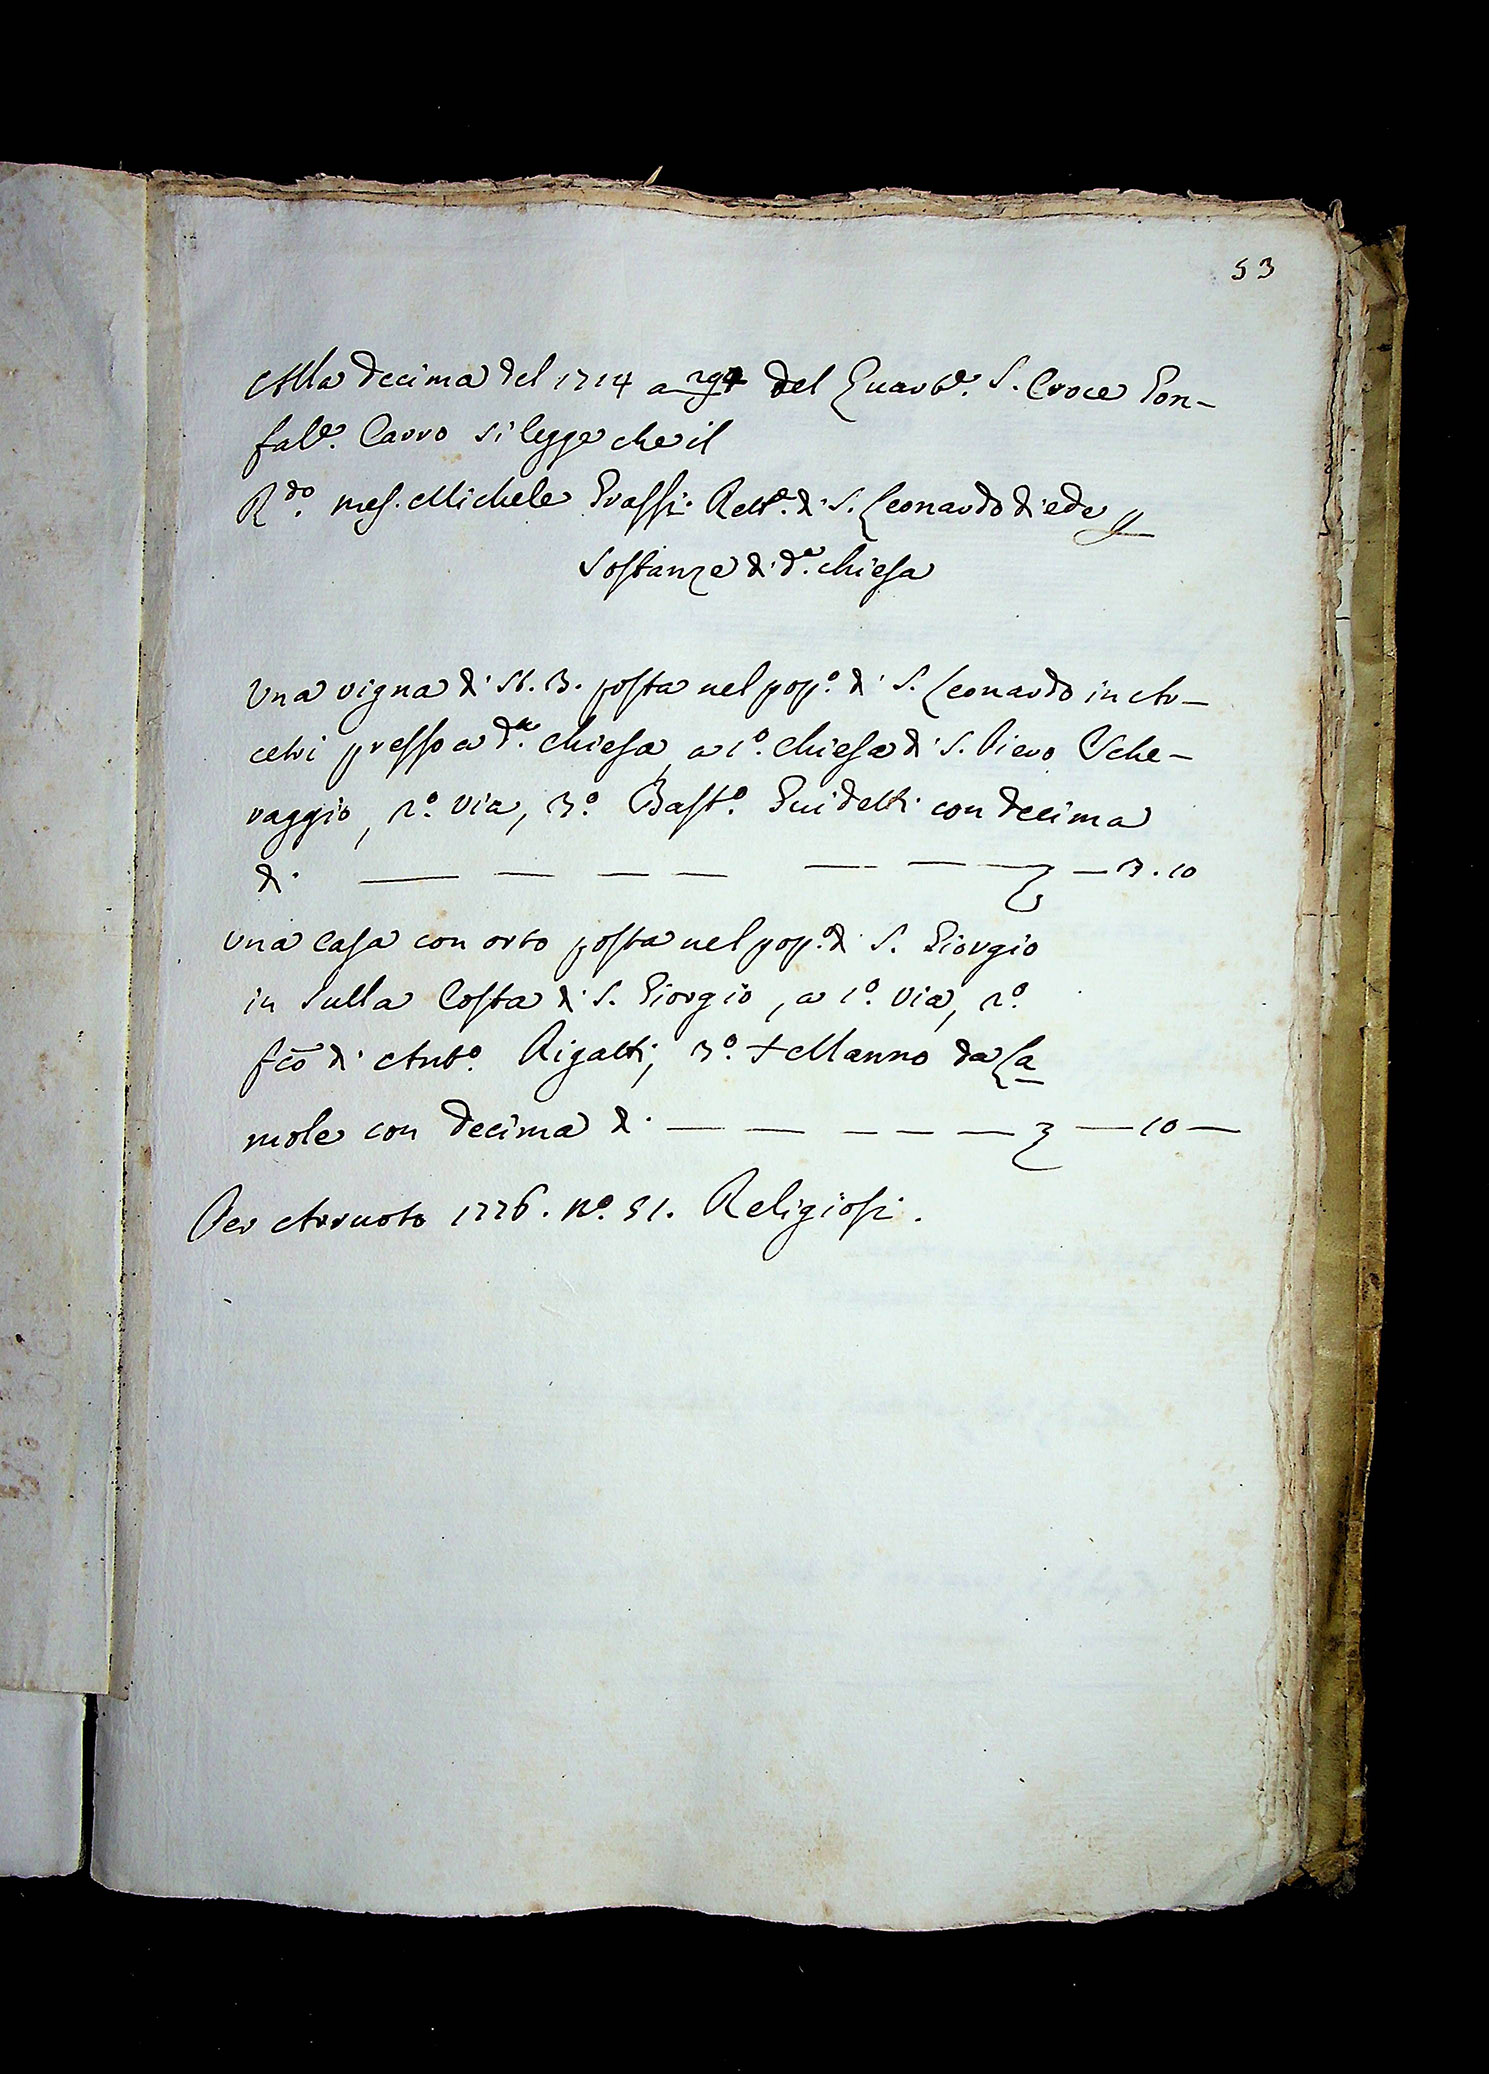 53
Alla decima del 1714 a 294 del Quart.e S. Croce Gon-
fal.e Carro si legge che il
R.do mes. Michele Grassi Rett.e di S. Leonardo diede p
Sostanze di d.a chiesa
Una vigna di st. 3. posta nel pop.o di S. Leonardo in Ar-
cetri presso a d.a chiesa, a 1.o chiesa di S. Piero Sche-
raggio, 2.o via, 3.o Bast.o Guidetti con decima
di — — — — — — — 3.10
Una casa con orto posta nel pop.o di S. Giorgio
in sulla Costa di S. Giorgio, a 1.o via, 2.o
fco di Ant.o Rigatti, 3.o + Manno da La
mole con decima di — — — — — — 10 —
Per Arruoto 1776. N.o 51. Religiosi.